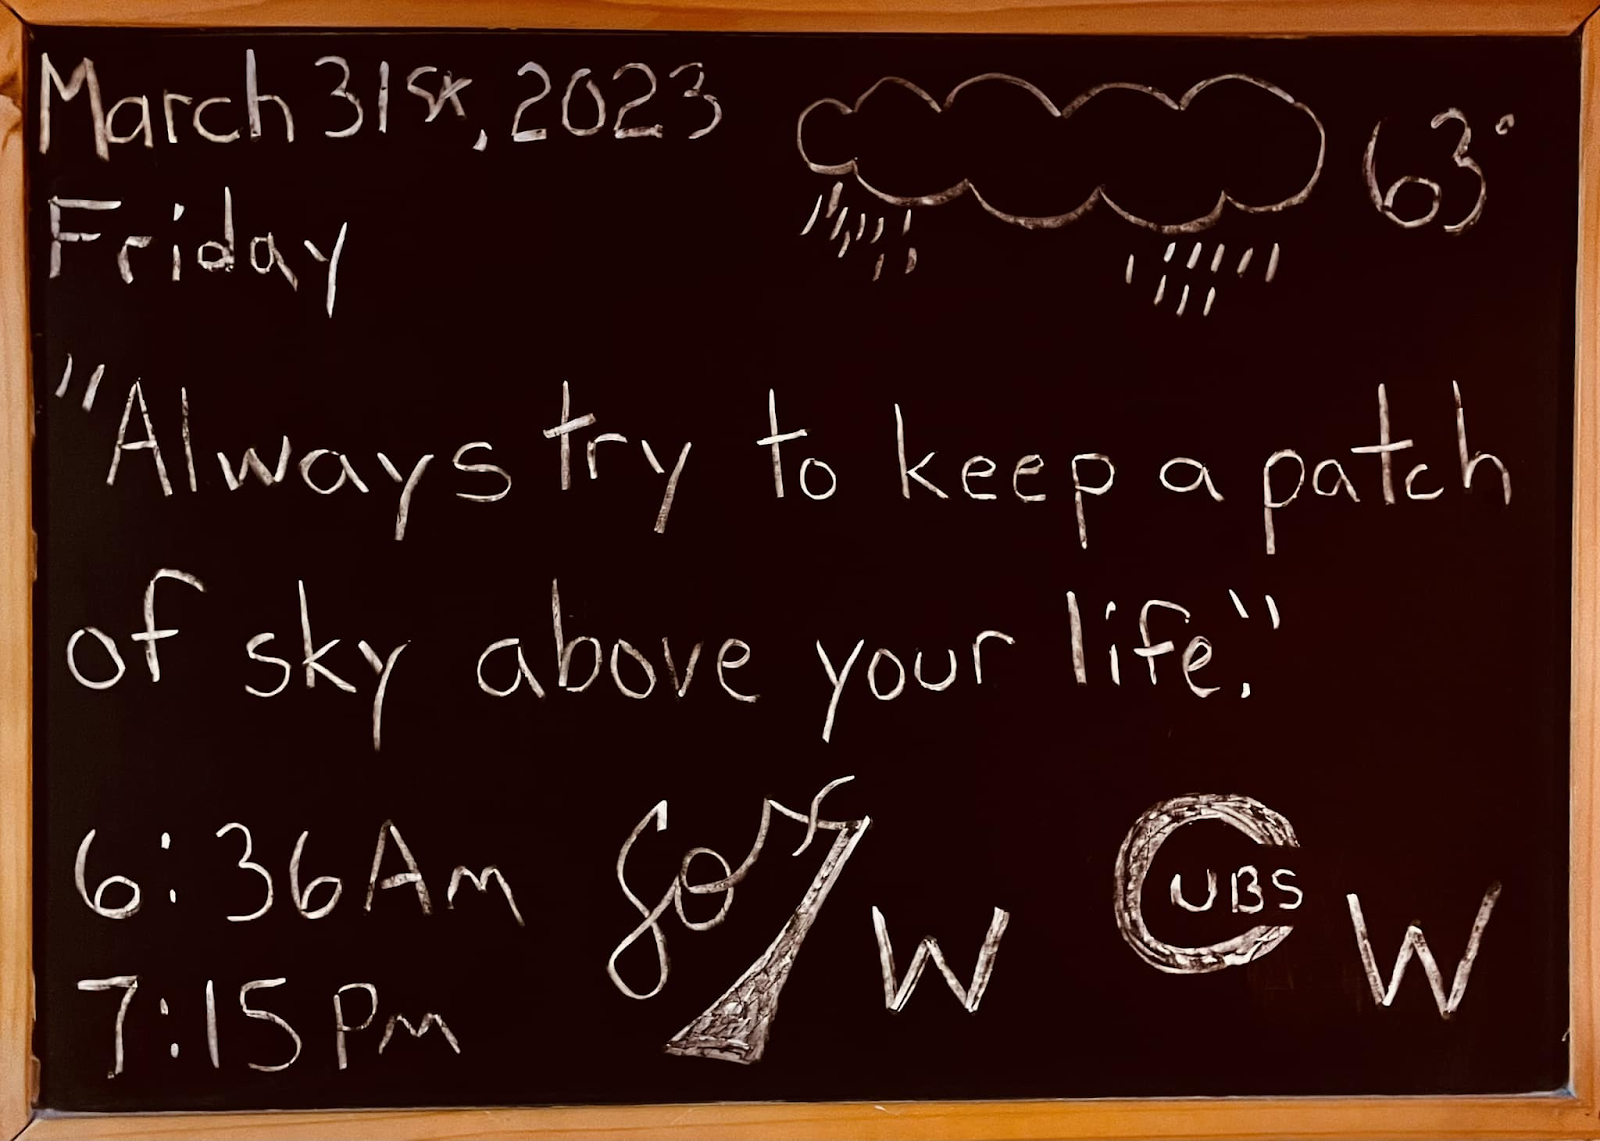 March 31st, 2023
63°
Friday
"Always try to keep a patch
of sky above your life."
6:36Am
Sox W
CUBS W
7:15Pm